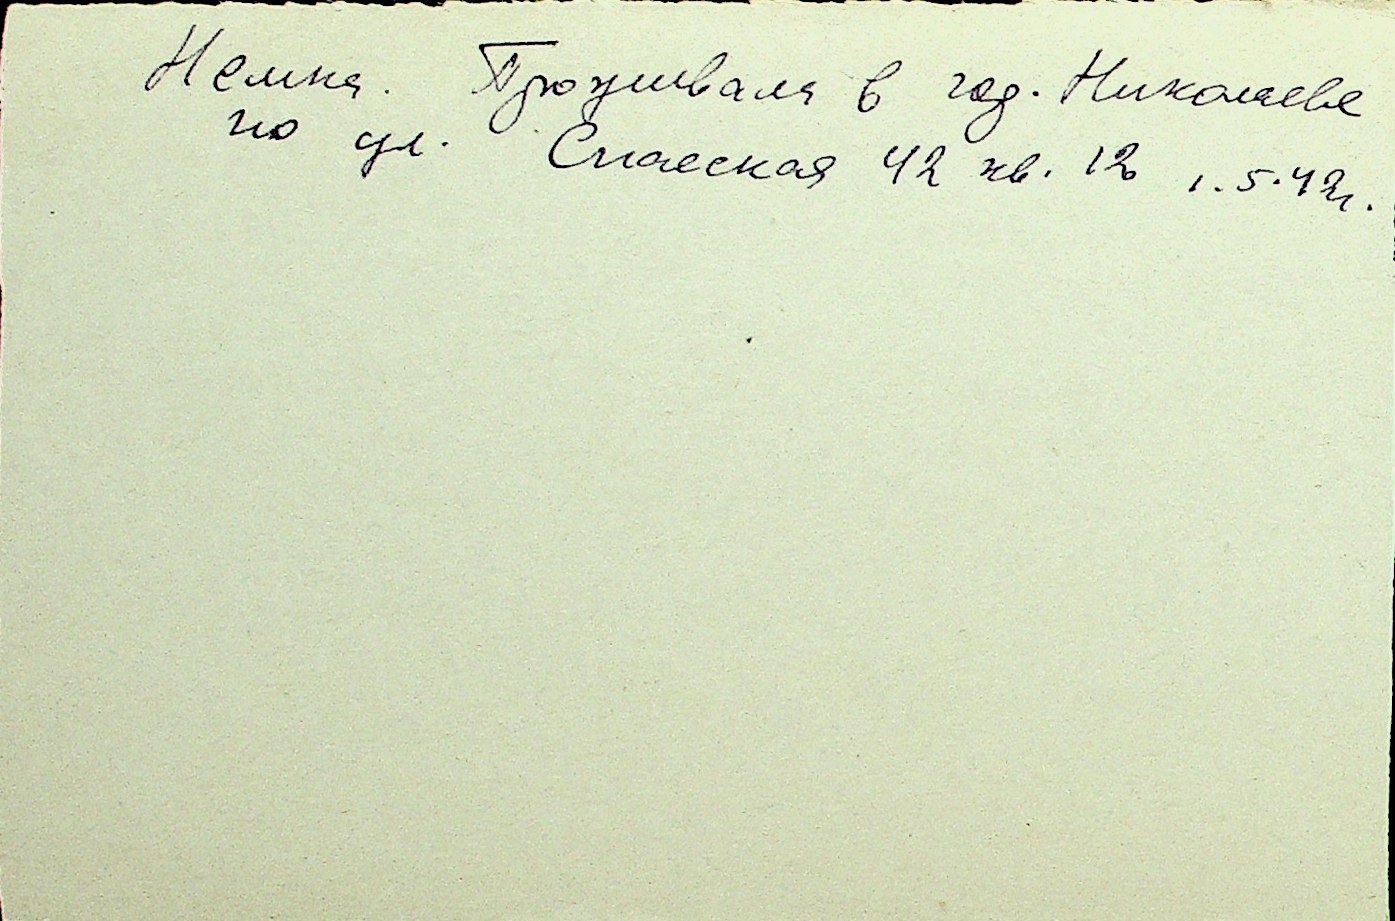 Немка. Проживала в гор. Николаеве
по ул. Спасская 42 кв. 12 1.5.42г.